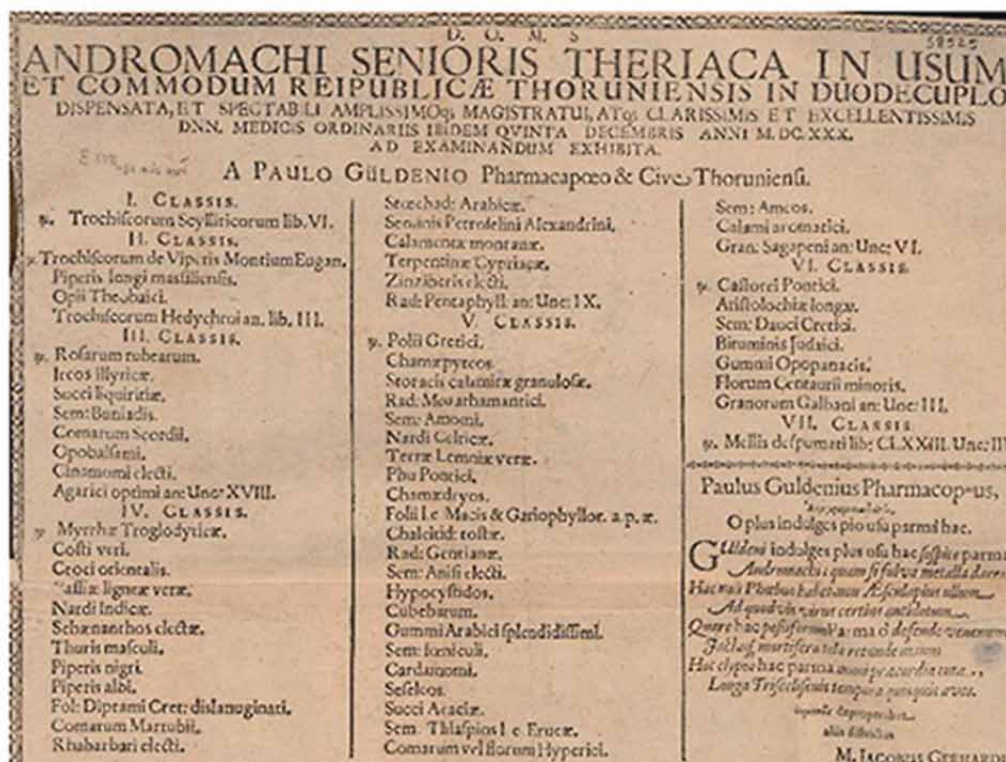 D. O. M. S
58525
ANDROMACHI SENIORIS THERIACA IN USUM
ET COMMODUM REIPUBLICÆ THORUNIENSIS IN DUODECUPLO
DISPENSATA, ET SPECTABILI AMPLISSIMOq; MAGISTRATUI, ATq; CLARISSIMIS ET EXCELLENTISSIMIS
DNN. MEDICIS ORDINARIIS IBIDEM QVINTA DECEMBRIS ANNI M.DC.XXX.
AD EXAMINANDUM EXHIBITA.
A PAULO GÜLDENIO Pharmacapœo & Cive Thoruniensi.
I. CLASSIS.
Trochiscorum Scylliticorum lib. VI.
II. CLASSIS.
Trochiscorum de Viperis Montium Eugan.
Piperis longi massiliensis.
Opii Thebaici.
Trochiscorum Hedychroi an. lib. III.
III. CLASSIS.
Rosarum rubearum.
Ireos illyricæ.
Succi liquiritiæ.
Sem: Buniadis.
Comarum Scordii.
Opobalsami.
Cinamomi electi.
Agarici optimi an: Unc: XVIII.
IV. CLASSIS.
Myrrhæ Troglodyticæ.
Costi veri.
Croci orientalis.
Cassiæ ligneæ veræ.
Nardi Indicæ.
Schænanthos electæ.
Thuris masculi.
Piperis nigri.
Piperis albi.
Fol: Diptami Cret: dislanuginati.
Comarum Marrubii.
Rhabarbari electi.
Stœchad: Arabicæ.
Seminis Petroselini Alexandrini.
Calamentæ montanæ.
Terpentinæ Cypriacæ.
Zinziberis electi.
Rad: Pentaphyll: an: Unc: IX.
V. CLASSIS.
Polii Cretici.
Chamæpyteos
Storacis calamitæ granulosæ.
Rad: Meu athamantici.
Sem: Amomi.
Nardi Celticæ.
Terræ Lemniæ veræ.
Phu Pontici.
Chamædryos.
Folii I.e. Macis & Gariophyllor. a. p. æ.
Chalcitid: tostæ.
Rad: Gentianæ.
Sem: Anisi electi.
Hypocystidos.
Cubebarum.
Gummi Arabici splendidissimi.
Sem: fœniculi.
Cardamomi.
Seselcos.
Succi Acaciæ.
Sem: Thlaspios I. e. Erucæ.
Comarum vel florum Hyperici.
Sem: Ameos.
Calami aromatici.
Gran: Sagapeni an: Unc: VI.
VI. CLASSIS.
Castorei Pontici.
Aristolochiæ longæ.
Sem: Dauci Cretici.
Bituminis Judaici.
Gummi Opopanacis.
Florum Centaurii minoris.
Granorum Galbani an: Unc: III.
VII. CLASSIS
Mellis despumati lib: CLXXIII. Unc: III
Paulus Guldenius Pharmacopœus,
O plus indulges pio usu parmi hac.
GUldeni indulges plus usu hac sospite parma
Andromachi: quam si fulva metalla
Hac nisi Phœbus habet aut Æsculapius ullum
Ad quodvis virus certius antidotum
Quare hac pestiferum Parma defende venenum
mortifera tela retunde
Hac clypeo hac parma
Longa tempora
M. JACOBUS GERHARDI